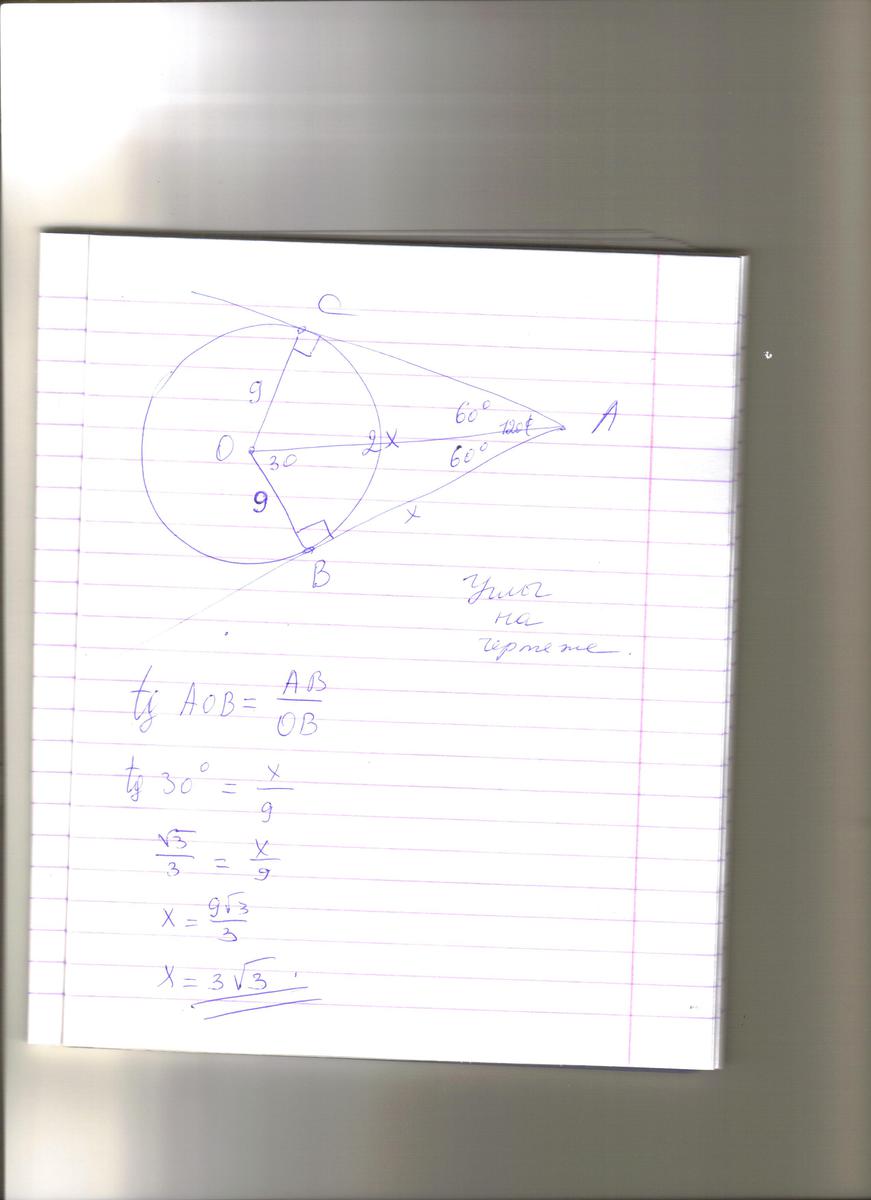 C
9
60°
120°
A
O
30
2x
60°
9
x
B
Углы
на
чертеже.
tg AOB = AB/OB
tg 30° = x/9
√3/3 = x/9
x = 9√3/3
x = 3√3.